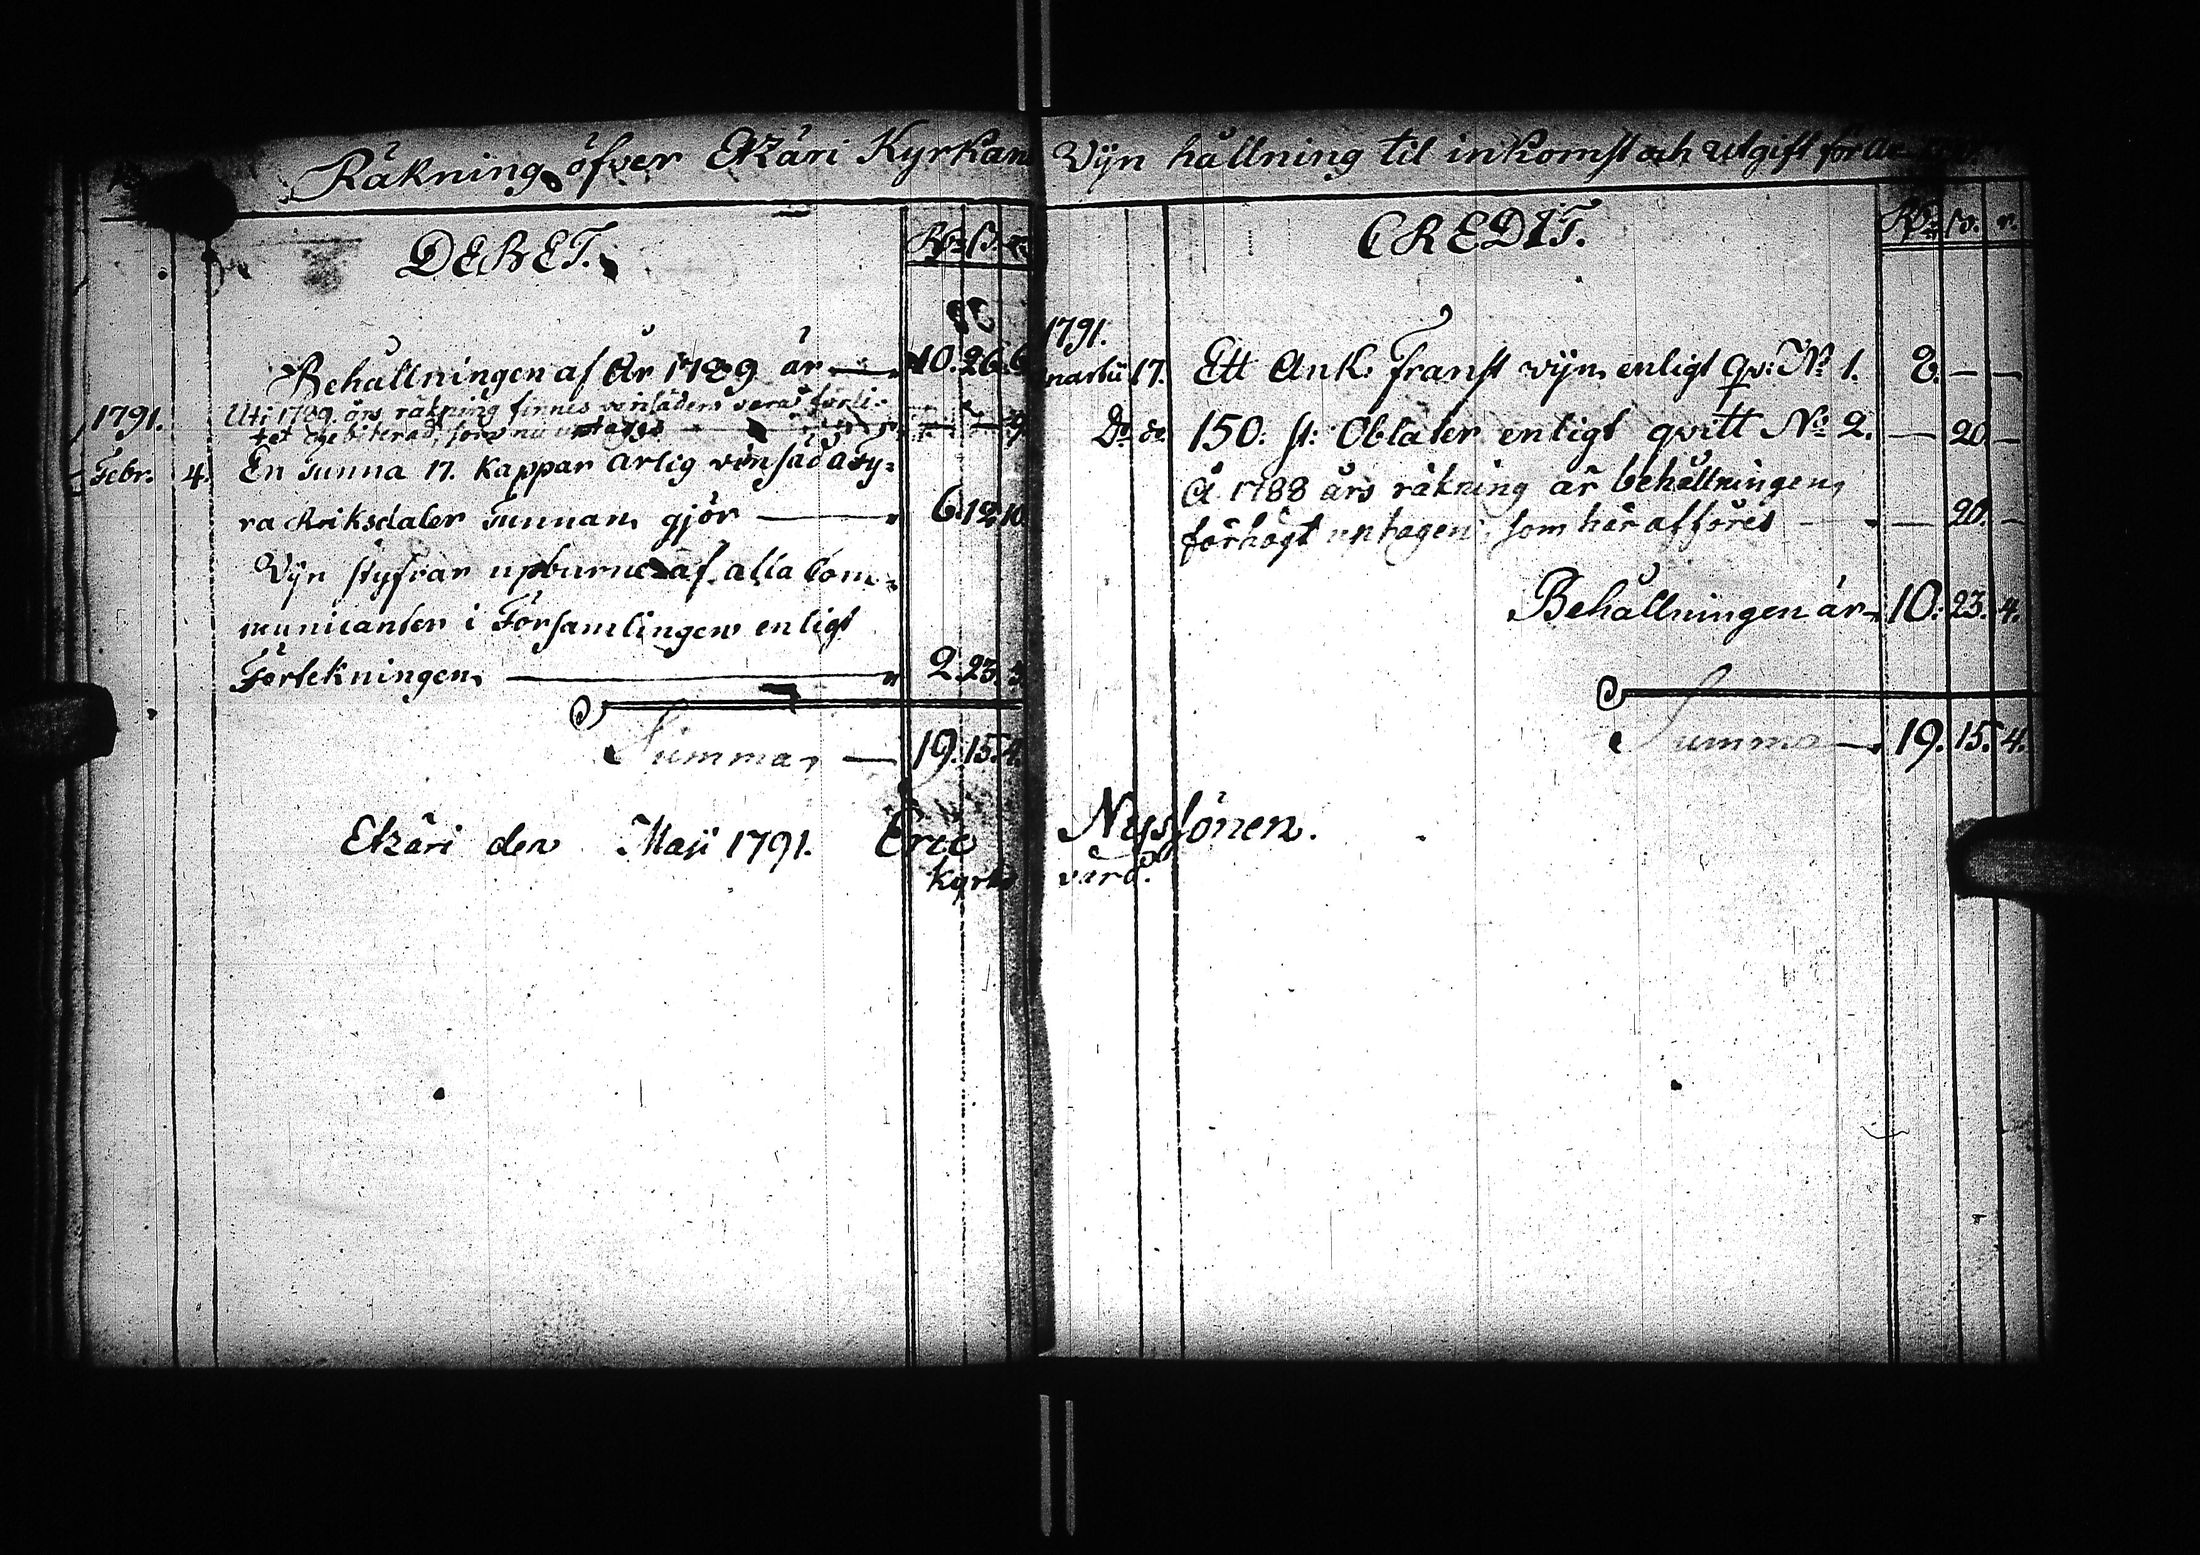 Räkning öfver Ekäri Kyrkans Vÿn hållning til inkomst och utgift för År
DEBET.
Rdr ß. r.
Behållningen af År 1789 är — 10. 26. 6
1791. Uti 1789 års räkning finnes vinsädens vara för li-
tet debiterad, som nu uptages — — 9
Febr. 4. En tunna 17. kappar årlig vinsäd a fy-
ra Riksdaler tunnan gjör — 6. 12. 10.
Vÿn styfrar upburne af alla Com-
municanter i Församlingen enligt
Förtekningen — 2. 23. 3
Summa — 19. 15. 4.
Ekäri den Maji 1791. Eric Nyssönen.
kyrko värd.
CREDIT.
Rdr ß. r.
1791.
Martii 17. Ett Ank. Franst vÿn enligt qv: No 1. 8. — —
Do do 150. st: Oblater enligt qvitt No 2. — 20 —
Å 1788 års räkning är behållningen
förhögt uptagen, som här afföres — — 20. —
Behållningen är 10. 23. 4.
Summa — 19. 15. 4.